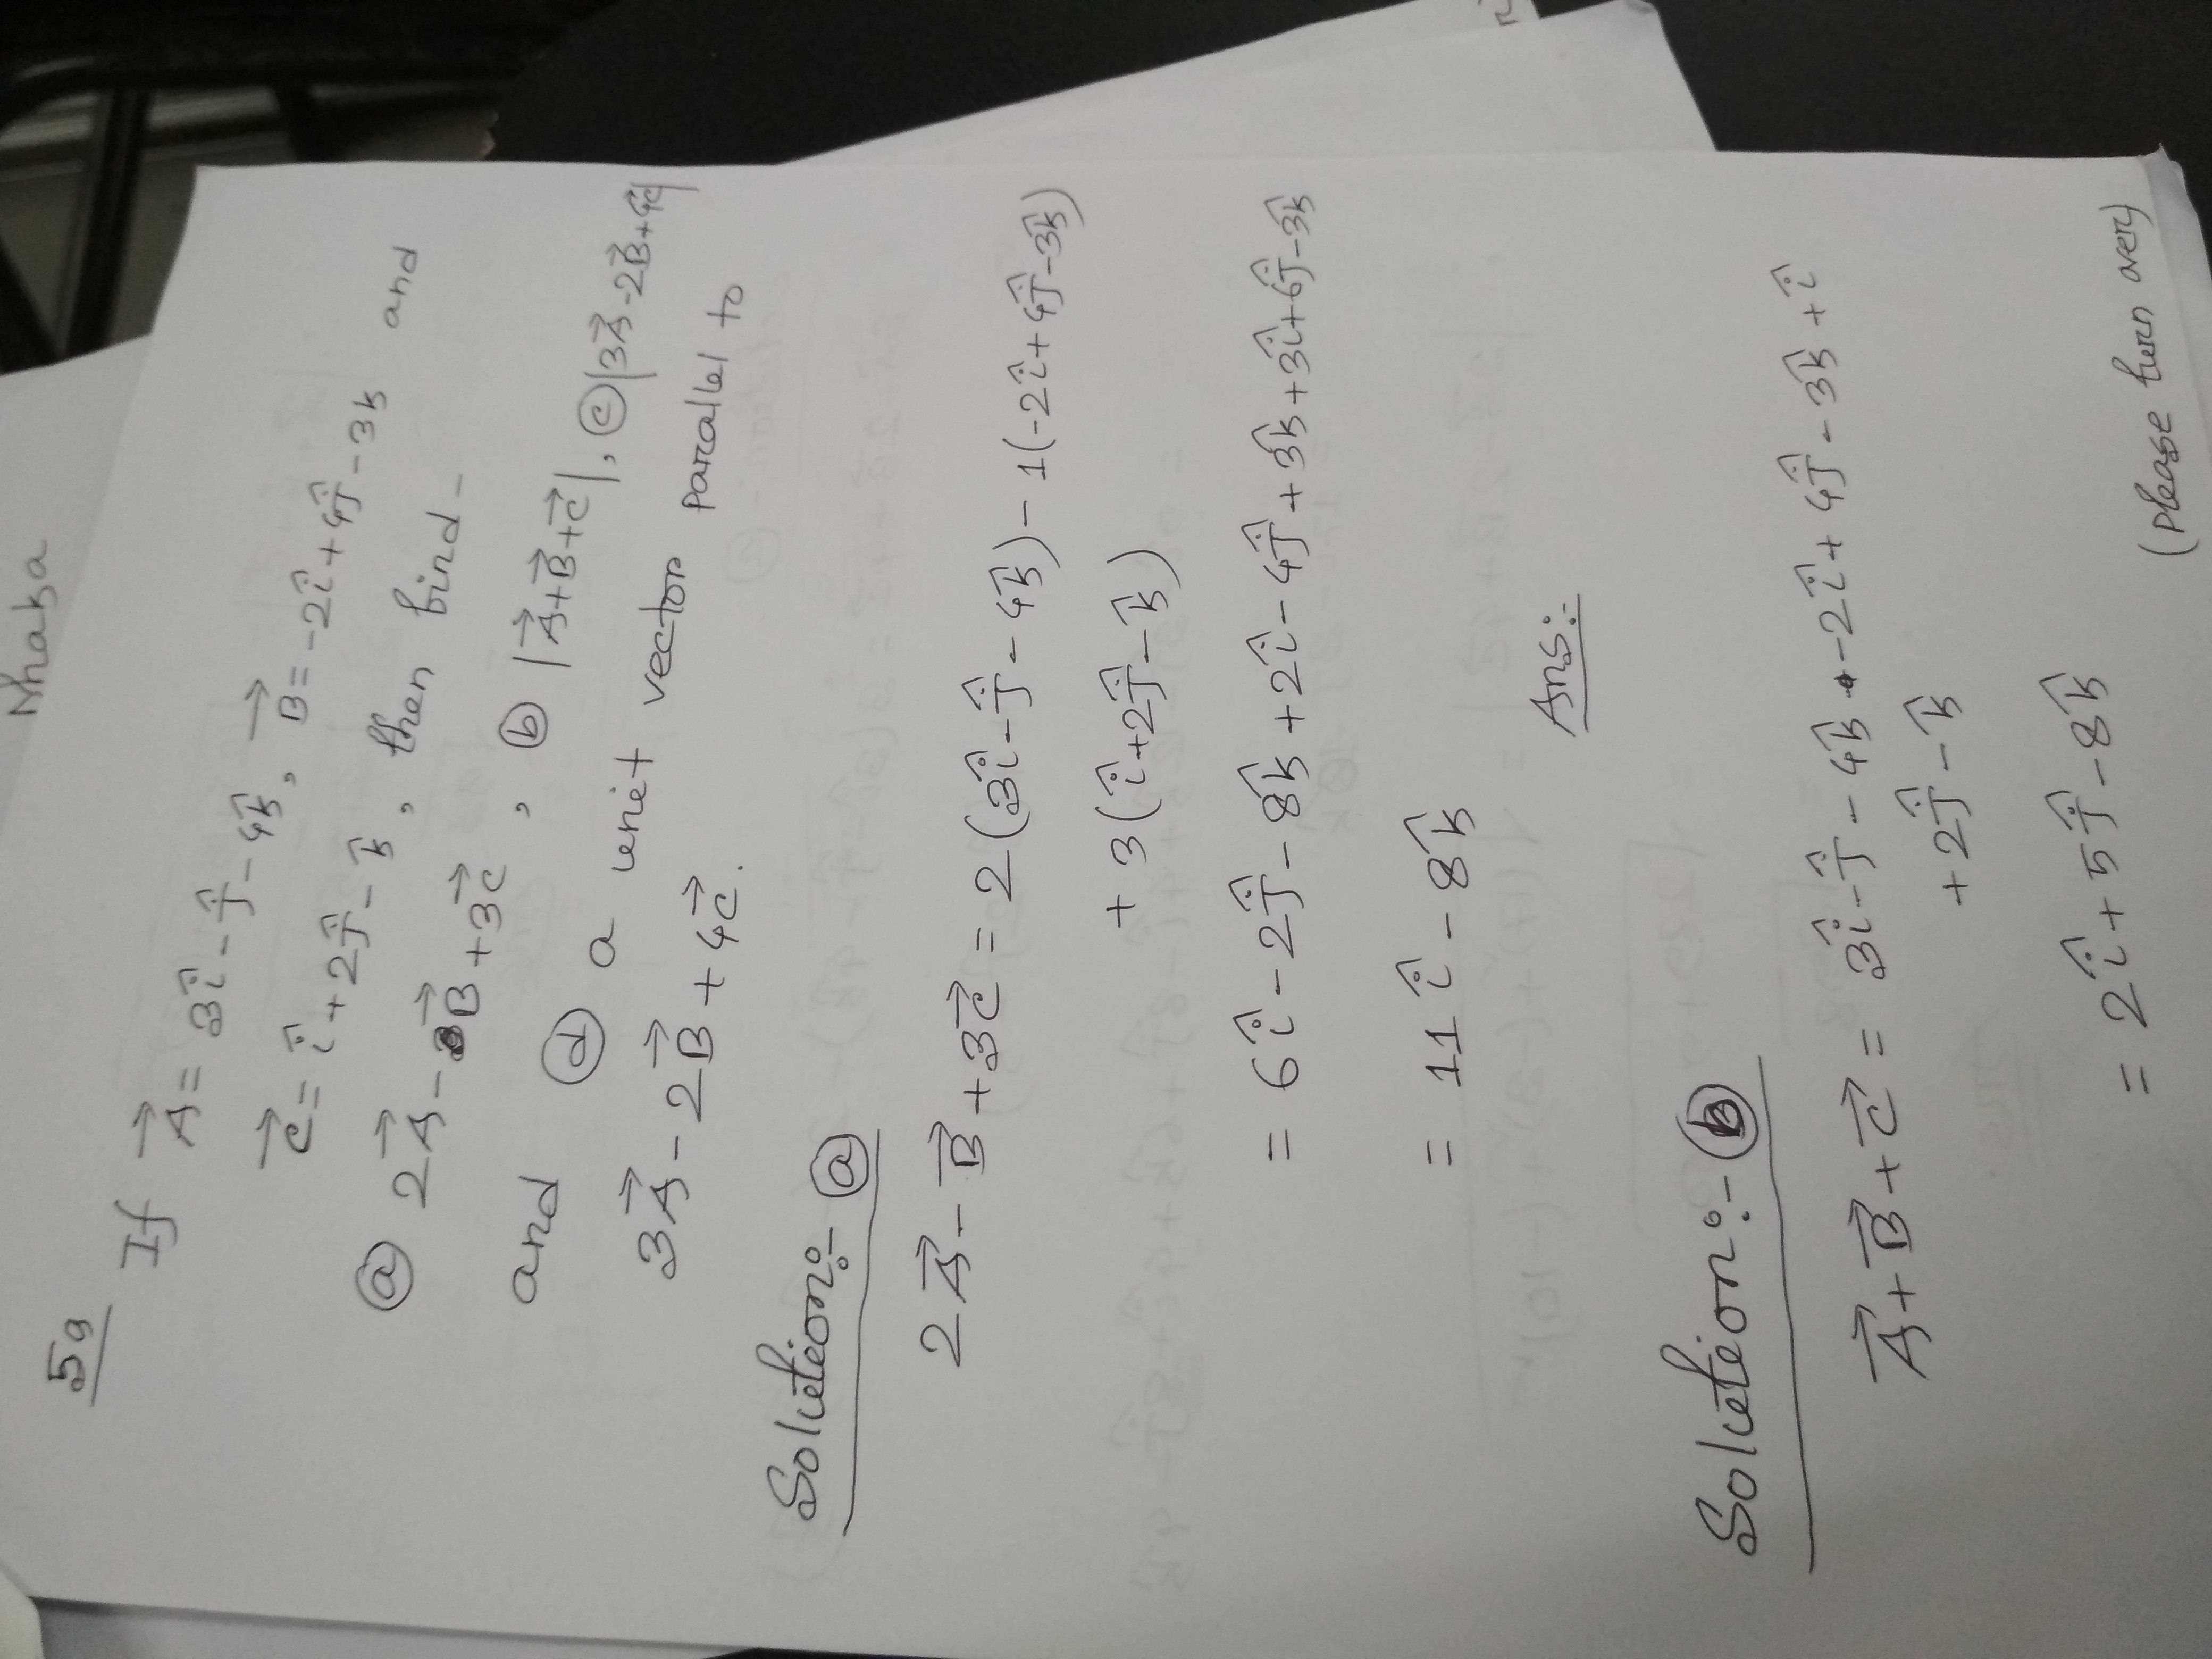 Nhaka
59
If A⃗ = 3î - ĵ - 4k̂, B⃗ = -2î + 4ĵ - 3k̂ and
C⃗ = î + 2ĵ - k̂, then find -
ⓐ 2A⃗ - B⃗ + 3C⃗, ⓑ |A⃗ + B⃗ + C⃗|, ⓒ |3A⃗ - 2B⃗ + 4C⃗|
and ⓓ a unit vector parallel to
3A⃗ - 2B⃗ + 4C⃗.
Solution:- ⓐ
2A⃗ - B⃗ + 3C⃗ = 2(3î - ĵ - 4k̂) - 1(-2î + 4ĵ - 3k̂)
+ 3(î + 2ĵ - k̂)
= 6î - 2ĵ - 8k̂ + 2î - 4ĵ + 3k̂ + 3î + 6ĵ - 3k̂
= 11î - 8k̂
Ans:-
Solution:- ⓑ
A⃗ + B⃗ + C⃗ = 3î - ĵ - 4k̂ - 2î + 4ĵ - 3k̂ + î
+ 2ĵ - k̂
= 2î + 5ĵ - 8k̂
(Please turn over)